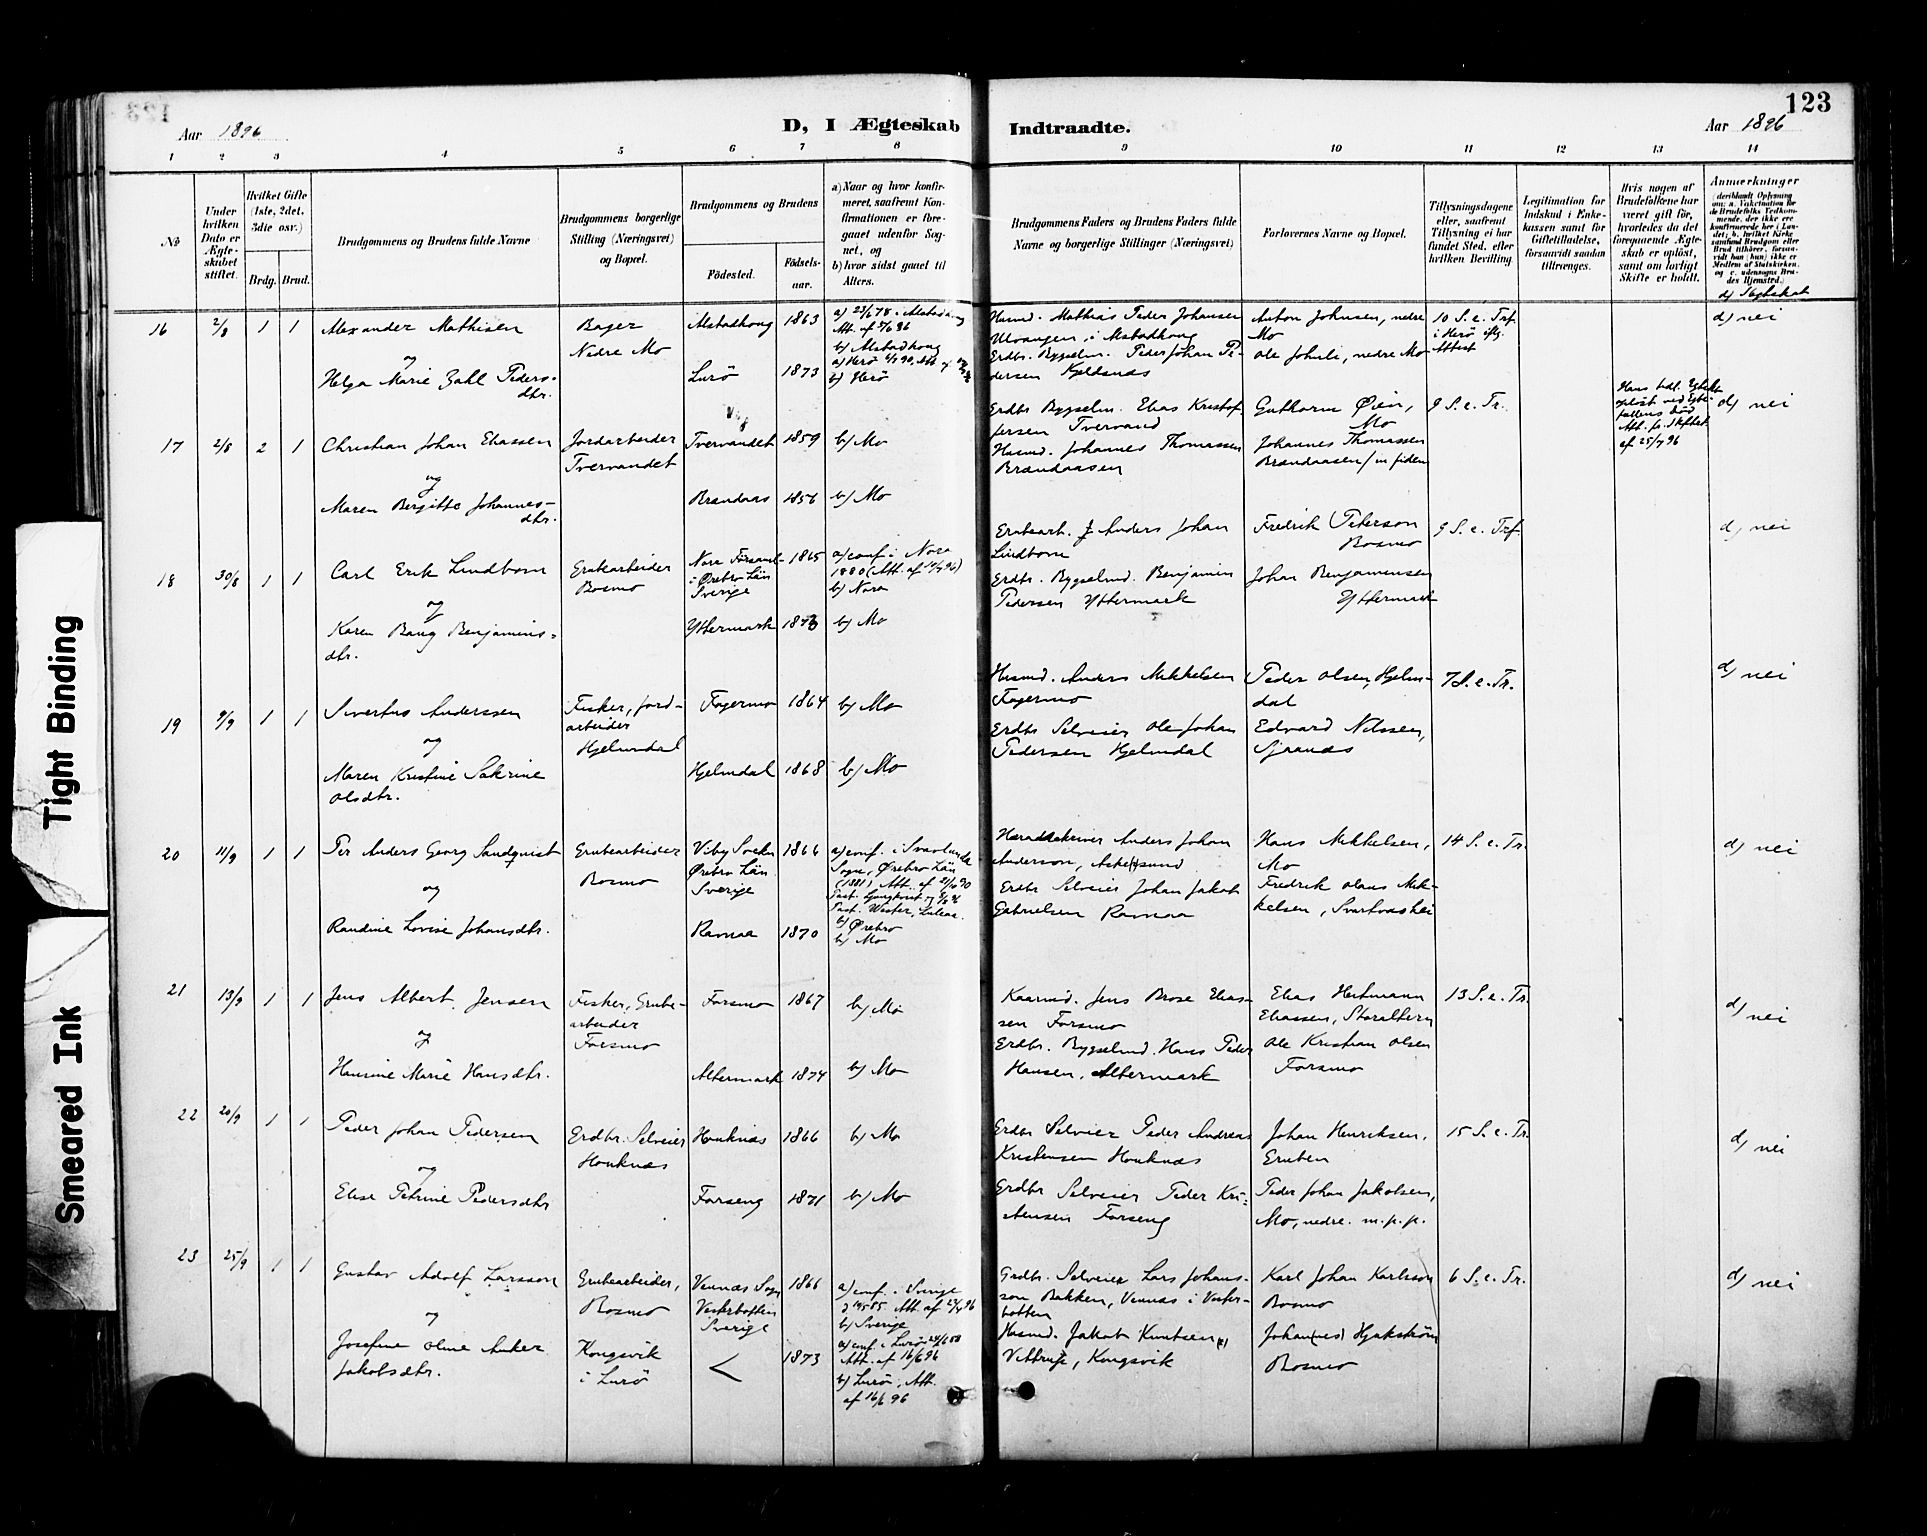 123
Aar 1896
D, I Ægteskab Indtraadte.
Aar 1896
1 2 3 4 5 6 7 8 9 10 11 12 13 14
No
Under hvilken Dato er Ægteskabet stiftet.
Hvilket Gifte (1ste, 2det, 3die osv.)
Brdg. Brud.
Brudgommens og Brudens fulde Navne
Brudgommens borgerlige Stilling (Næringsvei) og Bopæl.
Brudgommens og Brudens
Fødested.
Fødselsaar.
a) Naar og hvor konfirmeret, saafremt Konfirmationen er foregaaet udenfor Sognet, og
b) hvor sidst gaaet til Alters.
Brudgommens Faders og Brudens Faders fulde Navne og borgerlige Stillinger (Næringsvei)
Forlovernes Navne og Bopæl.
Tillysningsdagene eller, saafremt Tillysning ei har fundet Sted, efter hvilken Bevilling.
Legitimation for Indskud i Enkekassen samt for Giftetilladelse, forsaavidt saadan tiltrænges.
Hvis nogen af Brudefolkene har været gift før, hvorledes da det foregaaende Ægteskab er opløst, samt om lovligt Skifte er holdt.
Anmærkninger
16 2/8 1 1
Alexander Mathisen
og
Helga Marie Zahl Pedersdtr.
Bager
Nedre Mo
Alstadhoug 1863
Lurø 1873
b) Alstadhoug
b) Herø
Husmd. Mathias Peder Johansen
Ulvangen i Alstadhoug
Erdbr. Bygselm. Peder Johan Pedersen Kjeldsnæs
Anton Johnsen, nedre Mo
Ole Johnli, nedre Mo
10 S. e. Trf.
i Herø iflg. Attest
d) nei
17 2/8 2 1
Christian Johan Eliassen
og
Maren Bergitte Johannesdtr.
Jordarbeider
Tvervandet
Tvervandet 1859 b) Mo
Brændaas 1856 b) Mo
Erdbr Bygselm. Elias Kristoffersen Tvervand
Husmd. Johannes Thomassen
Brændaasen
Guthorm Øien, Mo
Johannes Thomassen
Brændaasen
9 S. e. Tr.
af 25/7 96
d) nei
18 30/8 1 1
Carl Erik Lindbom
og
Karen Baug Benjaminsdtr.
Grubearbeider
Bosmo
Nora Forsaml. i Ørebro Län
Sverige 1865
Yttermark 1873 b) Mo
a) conf. i Nora
1880 (Att. af 14/7 96)
b) Nora
Anders Johan
Lindbom
Erdbr. Bygselmd. Benjamin
Pedersen Yttermark
Fredrik Peterson
Bosmo
Johan Benjaminsen
Yttermark
9 S. e. Trf.
d) nei
19 9/9 1 1
Sivertus Anderssen
og
Maren Kristine Sakrine
Olsdtr.
Fisker, jordarbeider
Hjelmdal
Fagermo 1864 b) Mo
Hjelmdal 1868 b) Mo
Husmd. Anders Mikkelsen
Fagermo
Erdbr Selveier Ole Johan
Pedersen Hjelmdal
Peder Olsen, Hjelmdal
Edvard Nilssen,
Sjaanæs
7 S. e. Tr.
d) nei
20 11/9 1 1
Per Anders Georg Sandquist
og
Randine Lovise Johansdtr.
Grubearbeider
Bosmo
Viby Socken
Ørebro Län
Sverige 1866
Ramaa 1870
b) Ørebro
b) Mo
Häradsskriver Anders Johan
Anderson, Askersund
Erdbr Selveier Johan Jakob
Gabrielsen Ramaa
Hans Mikkelsen,
Mo
Fredrik Olaus Mikkelsen, Svartvashei
14 S. e. Tr.
d) nei
21 13/9 1 1
Jens Albert Jensen
og
Hansine Marie Hansdtr.
Fisker, Grubearbeider
Forsmo
Forsmo 1867 b) Mo
Altermark 1874 b) Mo
Kaarmd. Jens Brose Eliassen Forsmo
Erdbr. Bygselmd. Hans Peder
Hansen, Altermark
Elias Hertmann
Eliassen, Storaltern
Ole Kristian Olsen
Forsmo
13 S. e. Tr.
d) nei
22 20/9 1 1
Peder Johan Pedersen
og
Elise Petrine Pedersdtr
Erdbr. Selveier
Houknæs
Houknæs 1866 b) Mo
Forseng 1871 b) Mo
Erdbr Selveier Peder Andreas
Kristensen Houknæs
Grdbr Selveier Peder Kristensen Forseng
Johan Henriksen,
Gruben
Peder Johan Jakobsen,
Mo, nedre. m.p.p.
15 S. e. Tr.
d) nei
23 25/9 1 1
Gustav Adolf Larsson
og
Josefine Oline Anker
Jakobsdtr.
Grubearbeider,
Bosmo
Kongsvik
i Lurø
Vennæs Sogn
Vesterbotten
Sverige 1866
1873
a) conf. i Sverige
b) Sverige
Att. af 16/6 96
b) Lurø, Att.
af 16/6 96
Grdbr. Selveier Lars Johansson Bakken, Vennæs i Vesterbotten
Husmd. Jakob Knutsen
Kongsvik
Karl Johan Karlsson
Bosmo
Johan(nes) Hjukström
Bosmo
6 S. e. Tr.
d) nei
Tight Binding
Smeared Ink